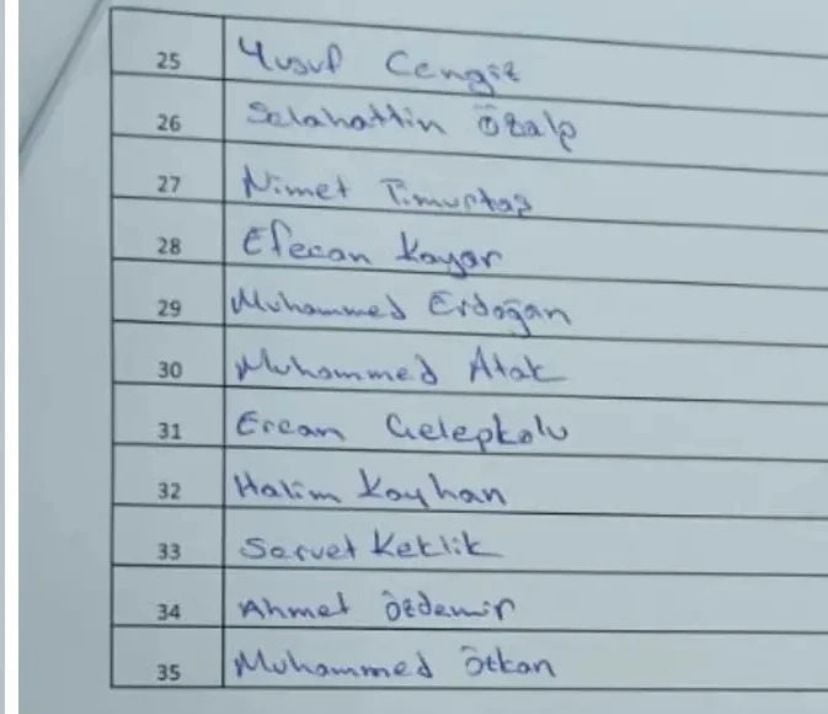 25 Yusuf Cengiz
26 Selahattin Özalp
27 Nimet Timurtaş
28 Efecan Kayar
29 Muhammed Erdoğan
30 Muhammed Atak
31 Ercan Gelepkolu
32 Halim Kayhan
33 Servet Keklik
34 Ahmet Özdemir
35 Muhammed Özkan